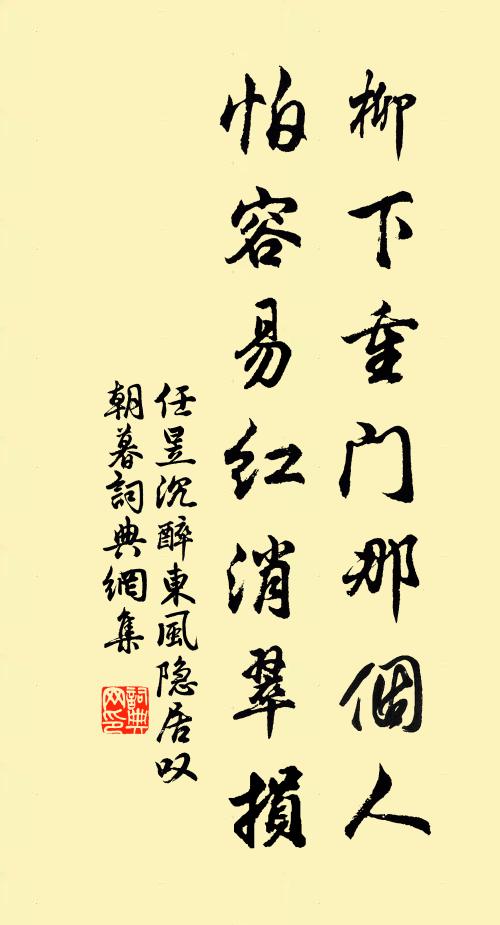 柳下重门那個人
怕容易红消翠損
任昱沉醉東風隐居叹
朝暮詞典網集
詞典网印